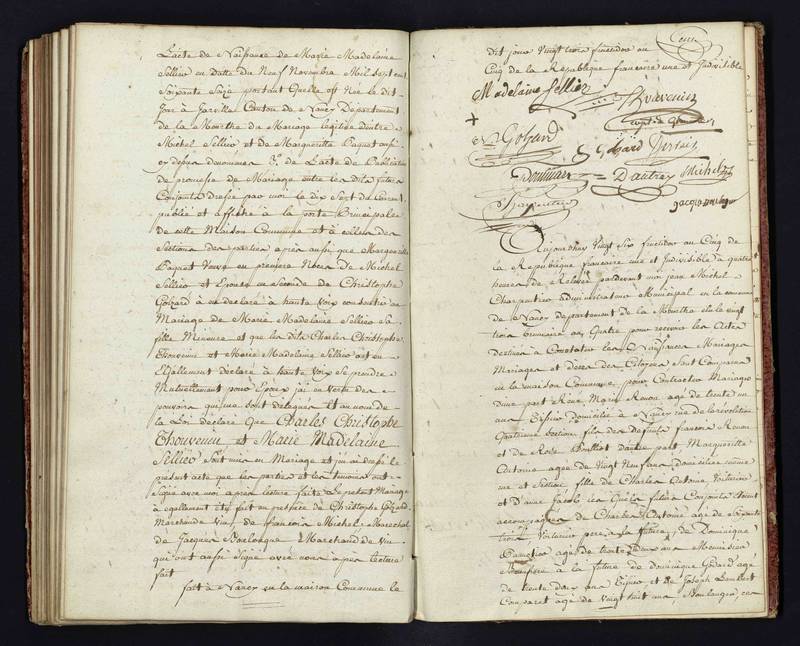 L'acte de Naissance de Marie Madelaine
Sellier en datte du Neuf Novembre Mil Sept cent
Soixante Seize portant Quelle est Née le dit
Jour à Jarville Canton de Nancy Département
de la Meurthe du Mariage légitime d'entre
Michel Sellier et de Marguerite Paquet aussi
cy devant dénommés 3°. de L'acte de Publication
de promesse de Mariage entre les dits futurs
Conjoints dressé par moi le dix Sept du Courant
publié et affiché à la porte Principale
de cette Maison Commune et à celles des
Sections des parties après aussi que Marguerite
Paquet Veuve en première Noces de Michel
Sellier et Epouse en Seconde de Christophe
Gohard à eu déclaré à haute Voix consentir au
Mariage de Marie Madelaine Sellier Sa
fille Mineure et que les dits Charles Christophe
Thouvenin et Marie Madelaine Sellier ont eu
Egallement déclaré à haute Voix se prendre
Mutuellement pour Epoux j'ai en vertu des
pouvoirs qui me sont délégués et au nom de
la Loi déclaré que Charles Christophe
Thouvenin et Marie Madelaine
Sellier Sont unis en Mariage et j'ai dressé le
présent acte que les parties et les temoins ont
Signé avec moi après lecture faite Le present Mariage
à egallement été fait en présence de Christophe Gohard
Marchand de Vin, de francois Michel Marechal
de Jacques Marchand de Vin
qui ont aussi Signé avec nous après lecture
fait
fait à Nancy en la maison Commune le
dit jour Vingt trois fructidor an
Cinq de la République française une et Indivisible
Madelaine Sellier Thouvenin
+
Gohard
Gohard
Dautrey Michel
Charpentier
Aujourdhuy Vingt Six fructidor an Cinq de
la République francaise une et Indivisible à quatre
heures de Relevée pardevant moi jean Michel
Charpentier administrateur Municipal en la commune
de Nancy département de la Meurthe élu le vingt
trois brumaire an Quatre pour recevoir les Actes
destinés à Constater les Naissances Mariages
et décès des Citoyens Sont Comparus
en la maison Commune pour Contracter Mariage
d'une part René Marie Renon agé de trente un
ans domicilié à Nancy rue de la révolution
Quatrieme Section, fils des défunts francois Renon
et de Rose d'autre part, Marguerite
Antoine agée de Vingt Neuf ans, domiciliée même
rue et Section fille de Charles Antoine Voiturier
et d'Anne les Quels futurs Conjoints étoient
accompagnés de Charles Antoine agé de Soixante
trois Voiturier pere à la future, de Dominique
agé de trente deux ans Menuisier
Beaufrere à la future de dominique Gérard agé
de trente deux ans et de Joseph Lambert
Comparet agé de Vingt huit ans, Boulanger, ces